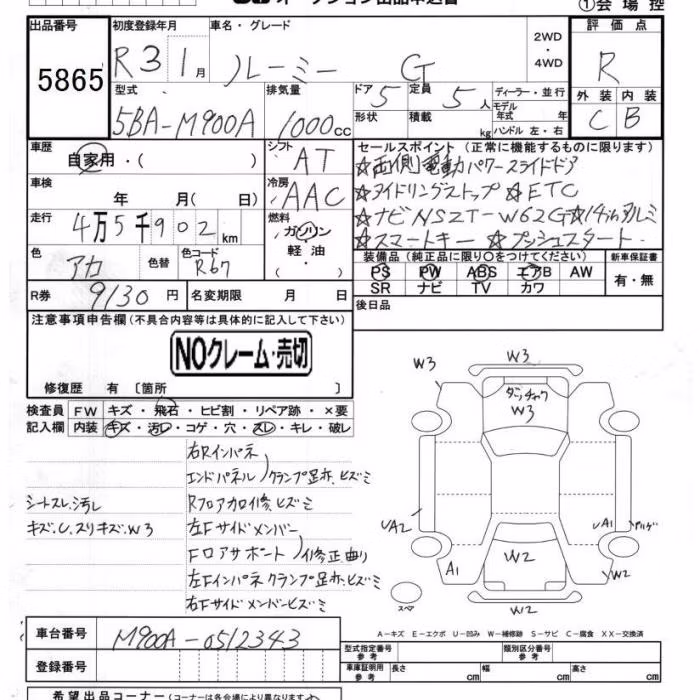 オークション出品申込書
①会場控
出品番号
5865
初度登録年月
R3 1月
車名・グレード
ルーミー G
2WD
・
4WD
評価点
R
外装 内装
C B
型式
5BA-M900A
排気量
1000cc
ドア 5
定員 5人
ディーラー・並行
モデル
年式 年
形状
積載 kg
ハンドル 左・右
車歴
自家用・( )
シフト
AT
車検
年 月( 日)
冷房
AAC
走行
4万5千902km
燃料
ガソリン
軽油・
( )
色
アカ
色替
色コード
R67
R券 9130円
名変期限 月 日
セールスポイント (正常に機能するものに限ります)
☆両側電動パワースライドドア
☆アイドリングストップ ☆ETC
☆ナビNSZT-W62G☆14inアルミ
☆スマートキー ☆プッシュスタート
装備品(純正品に限り○をつけてください)
新車保証書
PS PW ABS エアB AW
SR ナビ TV カワ
有・無
後日品
注意事項申告欄(不具合内容等は具体的に記入して下さい)
NOクレーム・売切
修復歴 有 〔箇所 〕
検査員
記入欄
FW キズ・飛石・ヒビ割・リペア跡・×要
内装 キズ・汚レ・コゲ・穴・スレ・キレ・破レ
右Rインパネ
エンドパネル クランプ足あ、ヒズミ
シートスレ、汚レ
Rフロアカロ修、ヒズミ
キズ、U、スリキズ、W3
左Fサイドメンバー
Fロアサポート 修正曲り
左Fインパネクランプ足あ、ヒズミ
右Fサイドメンバーヒズミ
W3
W3
W3
UA2
UA1
A1
W2
W2
W2
スペア
A-キズ E-エクボ U-凹み W-補修跡 S-サビ C-腐食 XX-交換済
車台番号
M900A-0512343
登録番号
型式指定番号
参考
類別区分番号
参考
車庫証明用
参考
長さ cm
幅 cm
高さ cm
希望出品コーナー(コーナーは各会場により異なります)